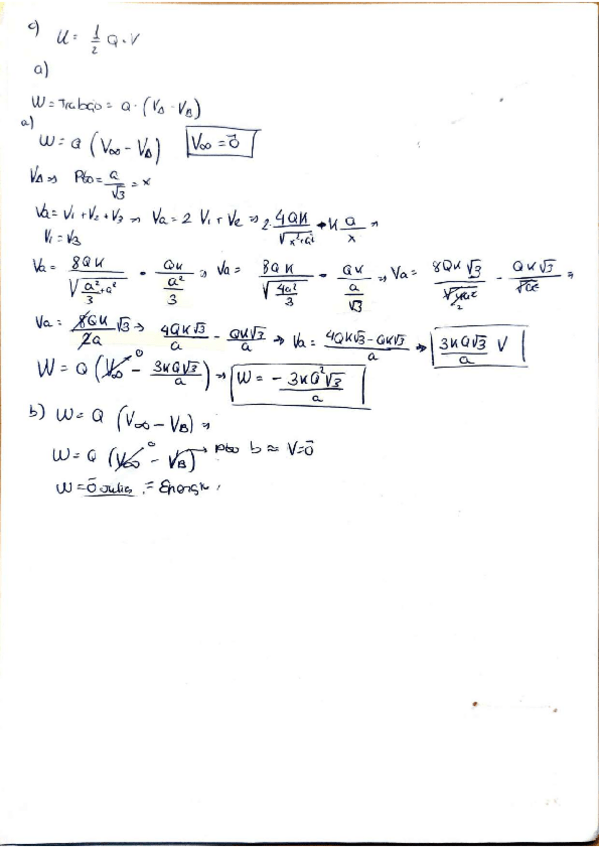 c) U = 1/2 Q·V
a)
W = Trabajo = Q·(VA - VB)
a)
W = Q (V∞ - VA) V∞ = 0⃗
VA ⇒ Pto = a/√3 = x
Va = V1 + V2 + V3 ⇒ Va = 2 V1 + V2 ⇒ 2· 4QK/√(x²+a²) + K a/x ⇒
V1 = V3
Va = 8QK/√(a²/3 + a²) - QK/(a²/3) ⇒ Va = 8QK/√(4a²/3) - QK/(a/√3) ⇒ Va = 8QK√3/√4a² - QK√3/√a² ⇒
Va = 8QK/2a √3 ⇒ 4QK√3/a - QK√3/a ⇒ Va = (4QK√3 - QK√3)/a ⇒ 3KQ√3/a V
W = Q (V∞ 0 - 3KQ√3/a) ⇒ W = - 3KQ²√3/a
b) W = Q (V∞ - VB) ⇒
W = Q (V∞ 0 - VB) → Pto b ≈ V = 0⃗
W = 0⃗ Julios = Energía